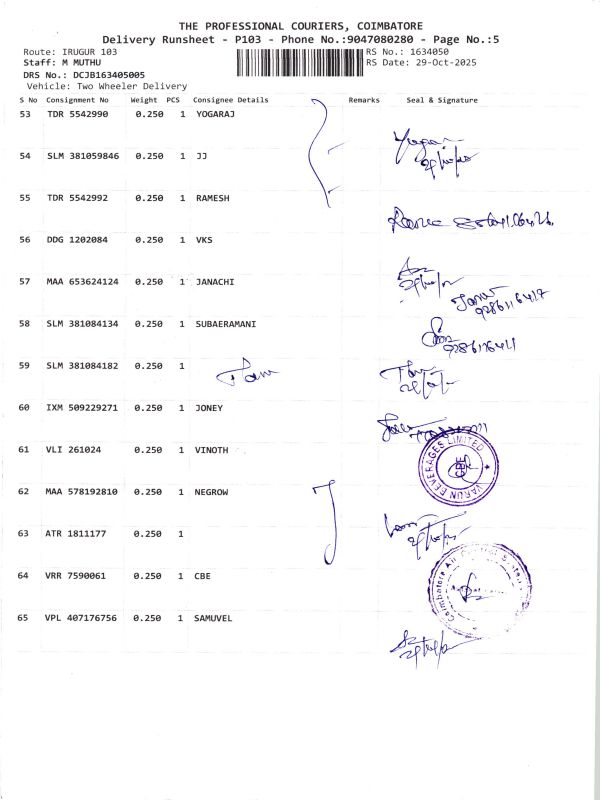 THE PROFESSIONAL COURIERS, COIMBATORE
Delivery Runsheet - P103 - Phone No.:9047080280 - Page No.:5
Route: IRUGUR 103
RS No.: 1634050
Staff: M MUTHU
RS Date: 29-Oct-2025
DRS No.: DCJB163405005
Vehicle: Two Wheeler Delivery
S No Consignment No Weight PCS Consignee Details Remarks Seal & Signature
53 TDR 5542990 0.250 1 YOGARAJ
54 SLM 381059846 0.250 1 JJ
55 TDR 5542992 0.250 1 RAMESH
56 DDG 1202084 0.250 1 VKS
57 MAA 653624124 0.250 1 JANACHI
58 SLM 381084134 0.250 1 SUBAERAMANI
59 SLM 381084182 0.250 1
60 IXM 509229271 0.250 1 JONEY
61 VLI 261024 0.250 1 VINOTH
VARUN BEVERAGES LIMITED
CBE
62 MAA 578192810 0.250 1 NEGROW
63 ATR 1811177 0.250 1
64 VRR 7590061 0.250 1 CBE
Coimbatore Air Control Systems
65 VPL 407176756 0.250 1 SAMUVEL